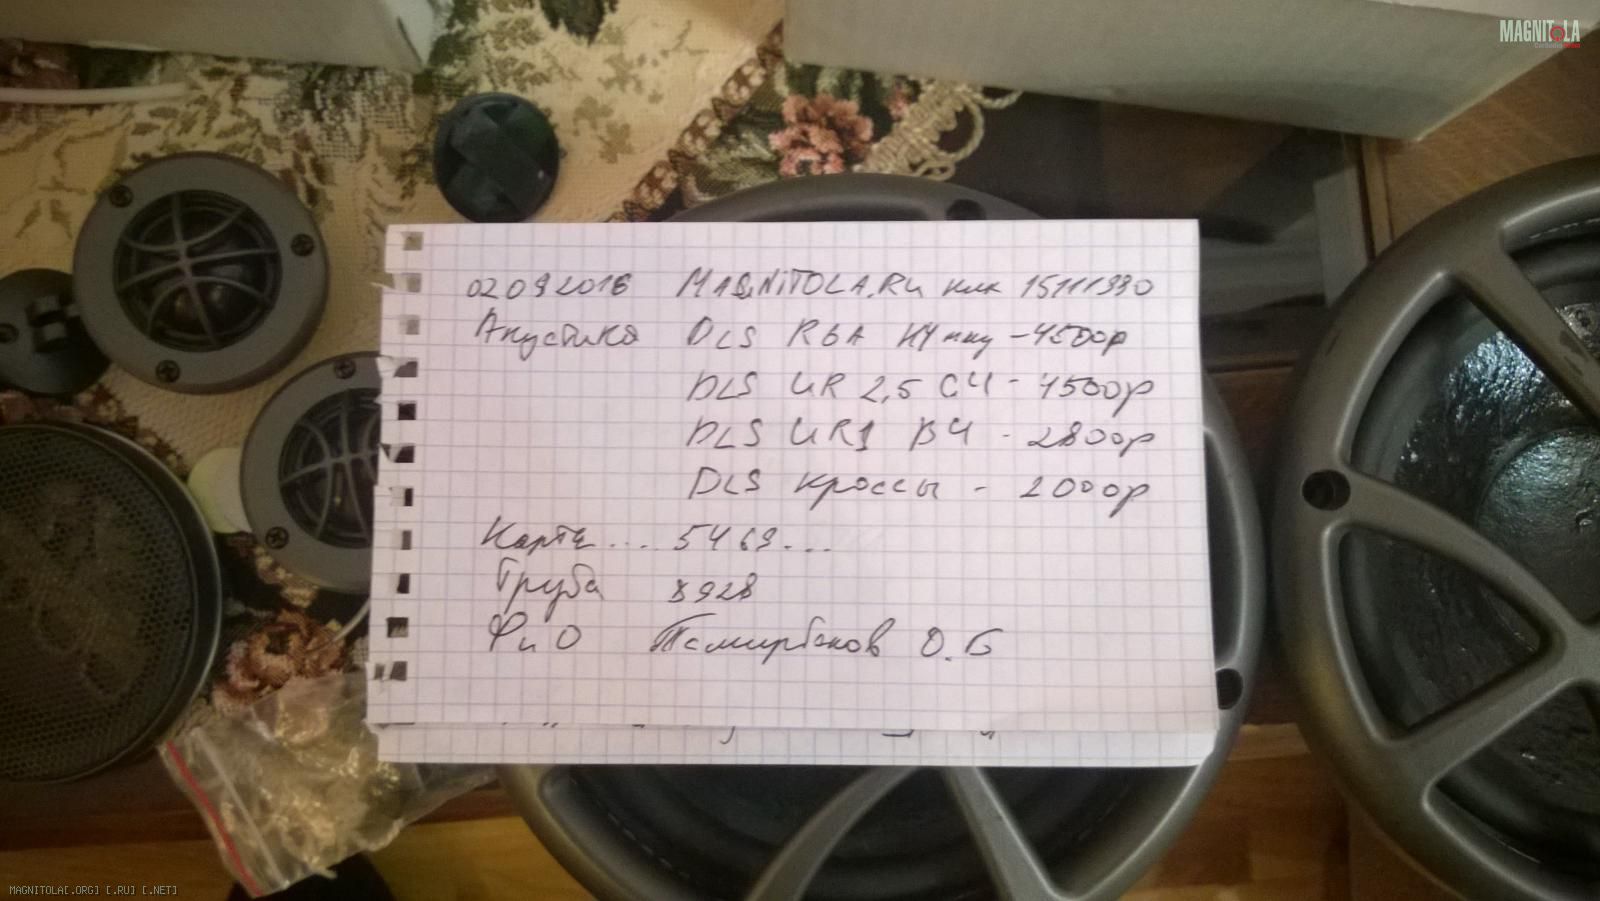 MAGNITOLA
02092016 MAGNITOLA.RU ник 15111990
Акустика DLS R6A НЧ пищ - 4500р
DLS UR 2,5 СЧ - 4500р
DLS UR1 ВЧ - 2800р
DLS кроссы - 2000р
Карта .... 5469...
Труба 8928
Фи О Темирбеков О.Б
MAGNITOLA[.ORG] [.RU] [.NET]